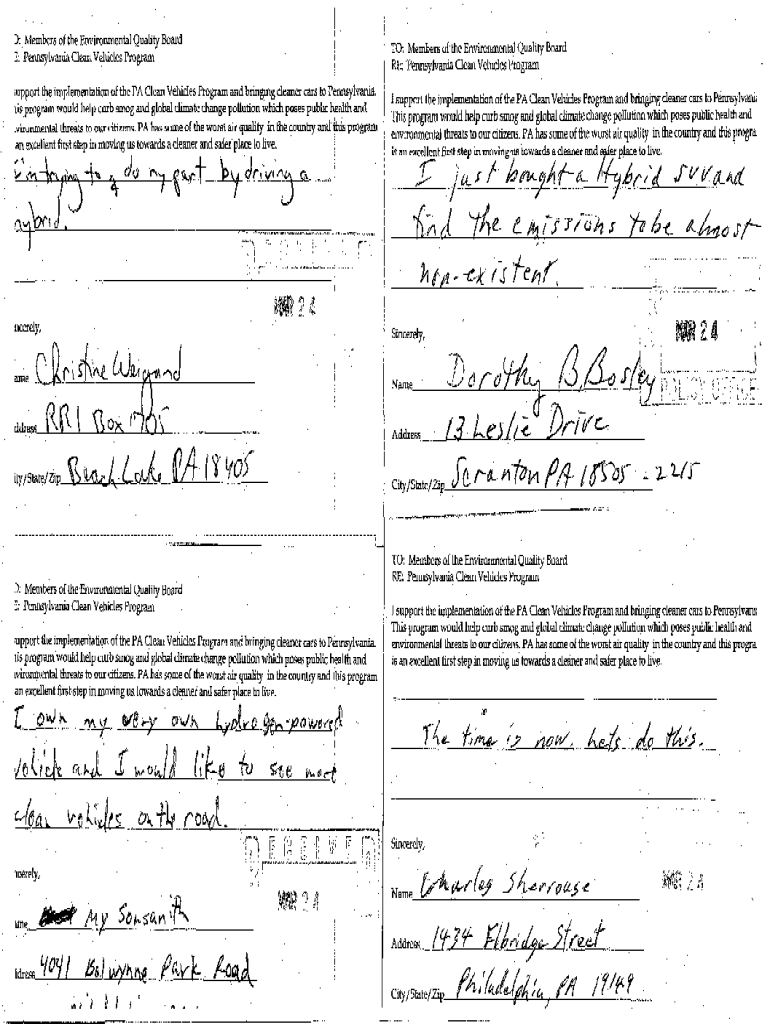 : Members of the Environmental Quality Board
: Pennsylvania Clean Vehicles Program
upport the implementation of the PA Clean Vehicles Program and bringing cleaner cars to Pennsylvania.
is program would help curb smog and global climate change pollution which poses public health and
vironmental threats to our citizens. PA has some of the worst air quality in the country and this program
an excellent first step in moving us towards a cleaner and safer place to live.
I'm trying to do my part by driving a
hybrid.
MAR 24
ncerely,
ame Christine Weigand
ddress RR1 Box 1705
ity/State/Zip Beach Lake PA 18405
TO: Members of the Environmental Quality Board
RE: Pennsylvania Clean Vehicles Program
I support the implementation of the PA Clean Vehicles Program and bringing cleaner cars to Pennsylvani
This program would help curb smog and global climate change pollution which poses public health and
environmental threats to our citizens. PA has some of the worst air quality in the country and this progra
is an excellent first step in moving us towards a cleaner and safer place to live.
I just bought a Hybrid SUV and
find the emissions to be almost
non-existent.
MAR 24
Sincerely,
Name Dorothy B. Bosley
POLICY OFFICE
Address 13 Leslie Drive
City/State/Zip Scranton PA 18505-2215
: Members of the Environmental Quality Board
: Pennsylvania Clean Vehicles Program
upport the implementation of the PA Clean Vehicles Program and bringing cleaner cars to Pennsylvania.
is program would help curb smog and global climate change pollution which poses public health and
vironmental threats to our citizens. PA has some of the worst air quality in the country and this program
an excellent first step in moving us towards a cleaner and safer place to live.
I own my very own hydrogen-powered
vehicle and I would like to see more
clean vehicles on the road.
RECEIVED
MAR 24
ncerely,
ame My Sonsanith
ddress 4041 Balwynne Park Road
TO: Members of the Environmental Quality Board
RE: Pennsylvania Clean Vehicles Program
I support the implementation of the PA Clean Vehicles Program and bringing cleaner cars to Pennsylvani
This program would help curb smog and global climate change pollution which poses public health and
environmental threats to our citizens. PA has some of the worst air quality in the country and this progra
is an excellent first step in moving us towards a cleaner and safer place to live.
The time is now. Lets do this.
Sincerely,
MAR 24
Name Charles Sherrouse
Address 1434 Elbridge Street
City/State/Zip Philadelphia, PA 19149